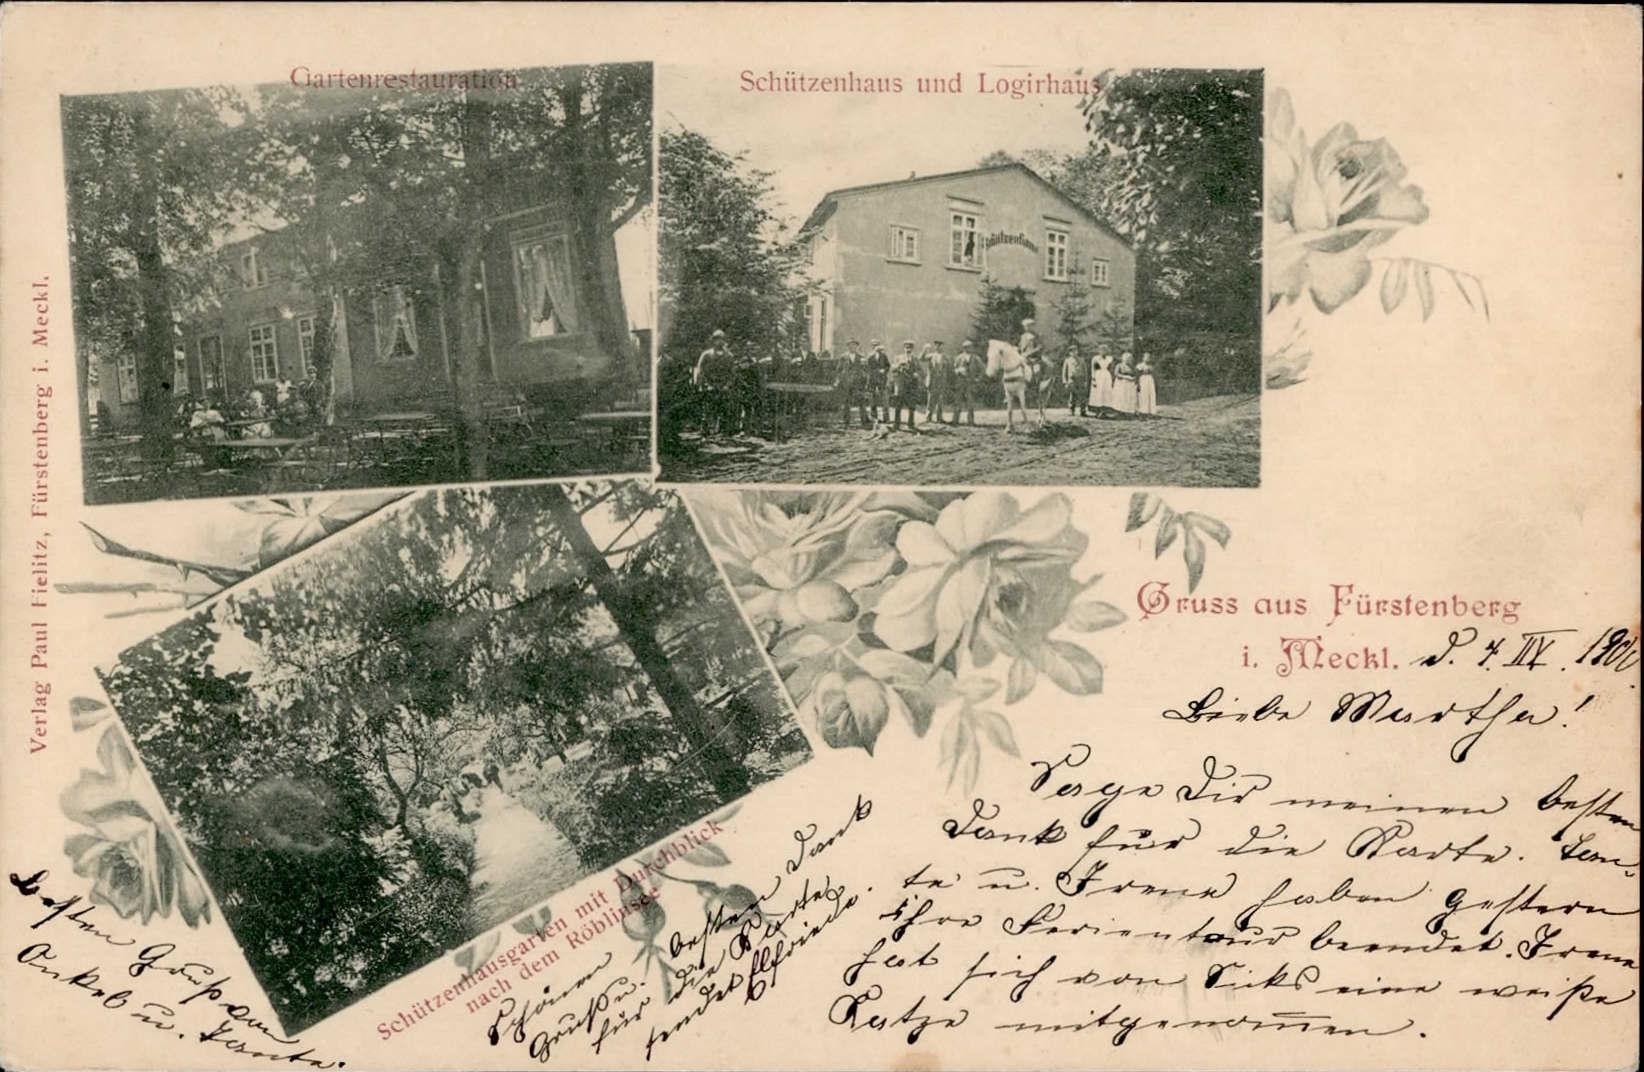 Gartenrestauration
Schützenhaus und Logirhaus
Schützenhaus
Verlag Paul Fielitz, Fürstenberg i. Meckl.
Gruss aus Fürstenberg
i. Meckl.
Schützenhausgarten mit Durchblick
nach dem Röblinsee
d. 4.
Liebe Martha!
Sage Dir meinen besten
Dank für die Karte. Tan-
te u. Irene haben gestern
ihre Ferientour beendet. Irene
hat sich von eine weiße
Katze mitgenommen.
Schönen
Gruß u. besten Dank
für die Karte
sendet Elfriede.
Besten Gruß von
Onkel u. Tante.